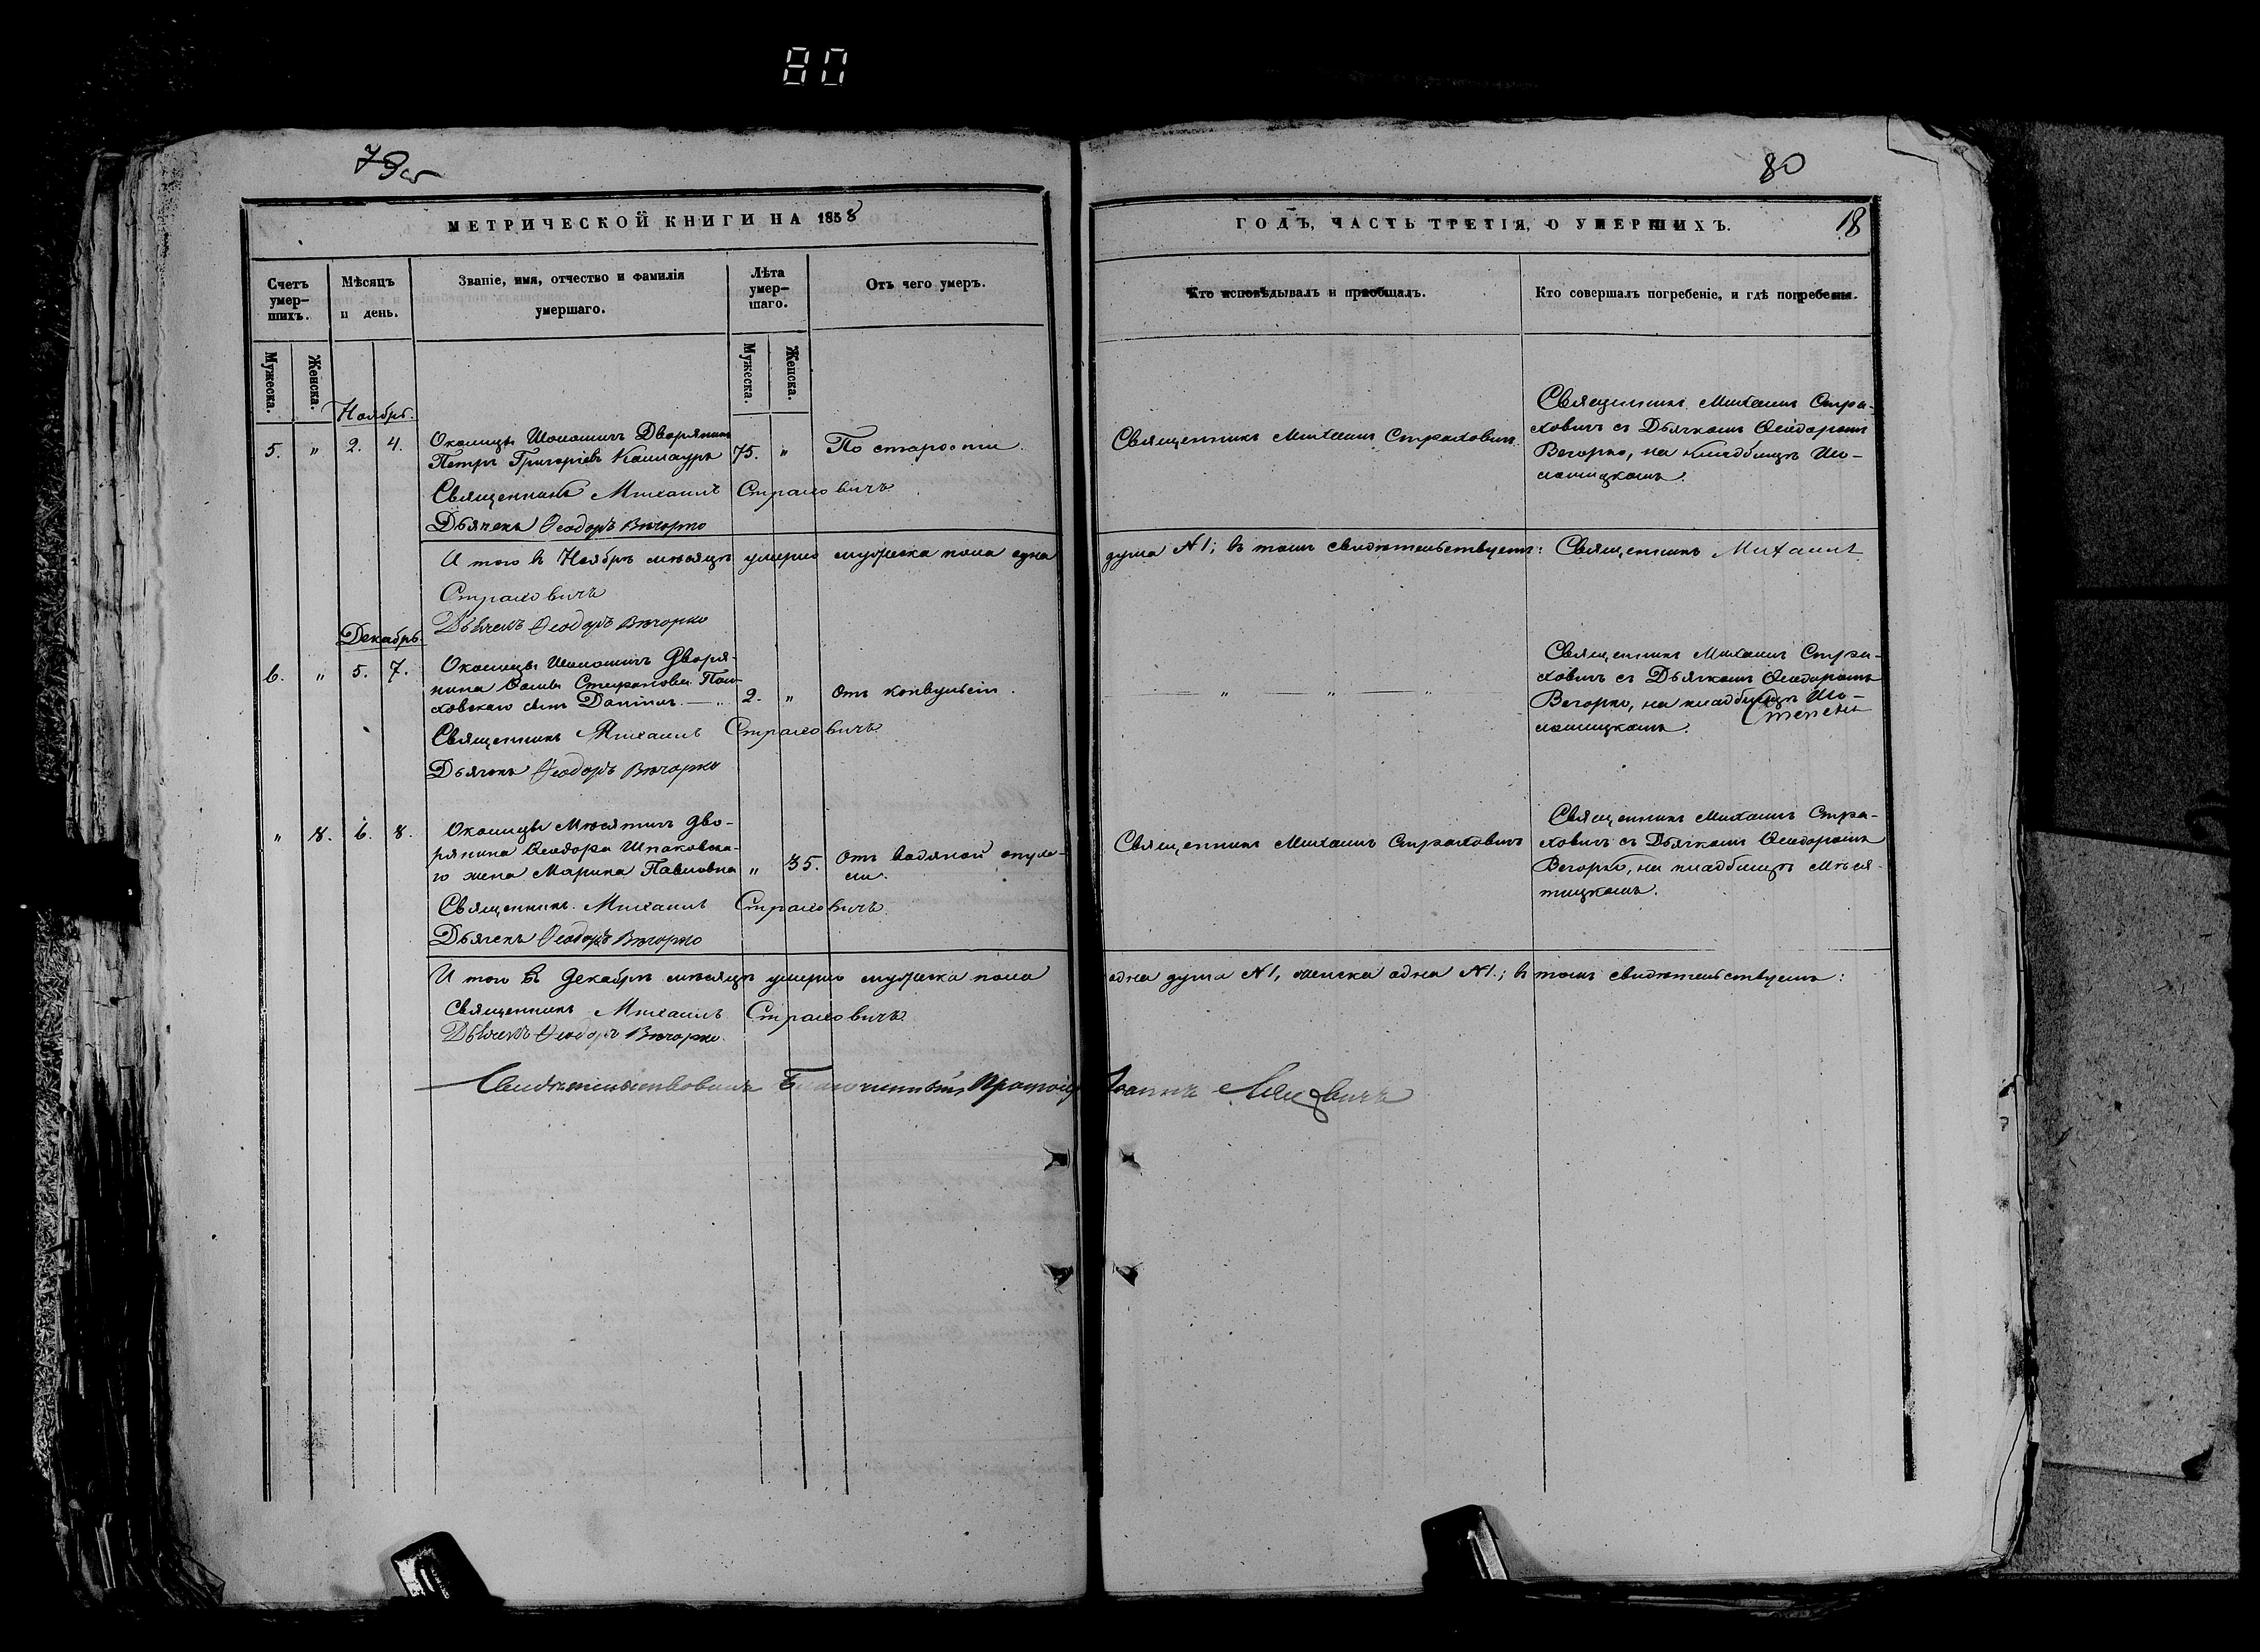 80
79об
80
МЕТРИЧЕСКОЙ КНИГИ НА 1858
ГОДЪ, ЧАСТЬ ТРЕТІЯ, О УМЕРШИХЪ.
18
Счетъ умер-
шихъ.
Мѣсяцъ
и день.
Званіе, имя, отчество и фамилія
умершаго.
Лѣта
умер-
шаго.
Отъ чего умеръ.
Кто исповѣдывалъ и пріобщалъ.
Кто совершалъ погребеніе, и гдѣ погребены.
Мужеска.
Женска.
Мужеска.
Женска.
Ноябрь.
5. " 2. 4.
Околицы Дворянинъ
Петръ Григоріевъ
75. "
По старости
Священникъ Михаилъ Страховичъ
Священникъ Михаилъ Стра-
ховичъ съ Дьячкомъ Ѳеодоромъ
на кладбищѣ
Священникъ Михаилъ Страховичъ
Дьячекъ Ѳеодоръ Вечорко
И того въ Ноябрѣ мѣсяцѣ умерло мужеска пола одна
душа №1; въ томъ свидѣтельствуемъ: Священникъ Михаилъ
Страховичъ
Дьячекъ Ѳеодоръ Вечорко
Декабрь.
6. " 5. 7.
Околицы Дворя-
нина Стефанова
сынъ
2. "
Отъ конвульсіи.
" " "
Священникъ Михаилъ Стра-
ховичъ съ Дьячкомъ Ѳеодоромъ
на кладбищѣ
Священникъ Михаилъ Страховичъ
Дьячекъ Ѳеодоръ Вечорко
" 8. 6. 8.
Околицы Мѣсятичъ Дво-
рянина Ѳеодора Шпаковска-
го жена Марина Павловна
" 35.
Отъ водяной опухо-
ли.
Священникъ Михаилъ Страховичъ
Священникъ Михаилъ Стра-
ховичъ съ Дьячкомъ Ѳеодоромъ
на кладбищѣ Мѣся-
тицкомъ.
Священникъ Михаилъ Страховичъ
Дьячекъ Ѳеодоръ Вечорко
И того въ Декабрѣ мѣсяцѣ умерло мужеска пола
одна душа №1, женска одна №1.; въ томъ свидѣтельствуемъ:
Священникъ Михаилъ Страховичъ
Дьячекъ Ѳеодоръ Вечорко
Свидѣтельствовалъ Благочинный, Іоаннъ